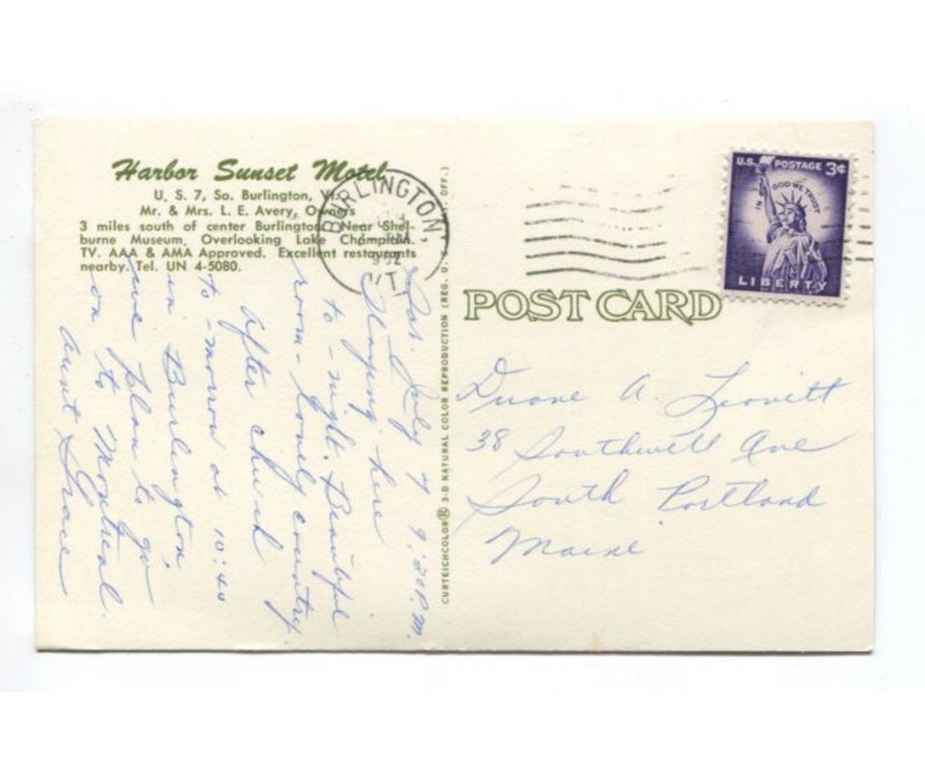 Harbor Sunset Motel
U. S. 7, So. Burlington, Vt.
Mr. & Mrs. L. E. Avery, Owners
3 miles south of center Burlington. Near Shel-
burne Museum, Overlooking Lake Champlain.
TV. AAA & AMA Approved. Excellent restaurants
nearby. Tel. UN 4-5080.
Sat. July 7 9:20 P.M.
Stopping here
to-night. Beautiful
room - lovely country.
After church
to-morrow at 10:40
in Burlington
we plan to go
on to Montreal.
Aunt Grace
CURTEICHCOLOR® 3-D NATURAL COLOR REPRODUCTION (REG. U. S. OFF.)
BURLINGTON,
VT.
U.S. POSTAGE 3¢
IN GOD WE TRUST
LIBERTY
POST CARD
Duane A. Leavitt
38 Southwell Ave
South Portland
Maine